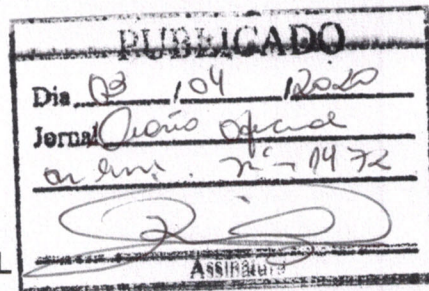 PUBLICADO
Dia 03 / 04 / 2020
Jornal Diário Oficial
nº 1472
L
Assinatura